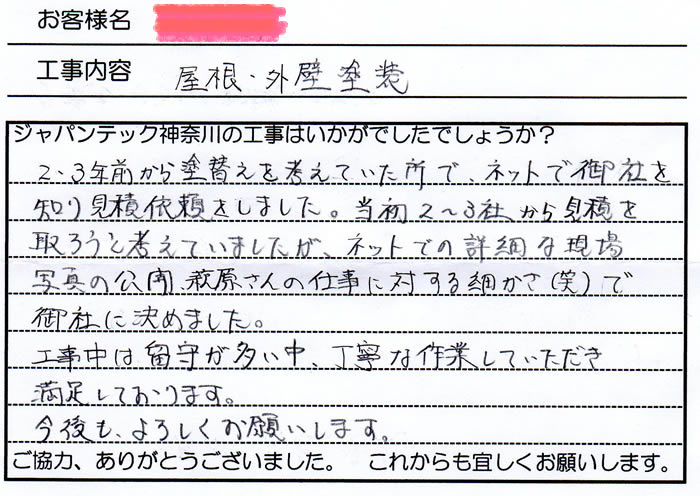 お客様名
工事内容 屋根・外壁塗装
ジャパンテック神奈川の工事はいかがでしたでしょうか？
2、3年前から塗替えを考えていた所で、ネットで御社を
知り見積依頼をしました。当初2～3社から見積を
取ろうと考えていましたが、ネットでの詳細な現場
写真の公開、萩原さんの仕事に対する細かさ(笑)で
御社に決めました。
工事中は留守が多い中、丁寧な作業していただき
満足しております。
今後も、よろしくお願いします。
ご協力、ありがとうございました。　これからも宜しくお願いします。